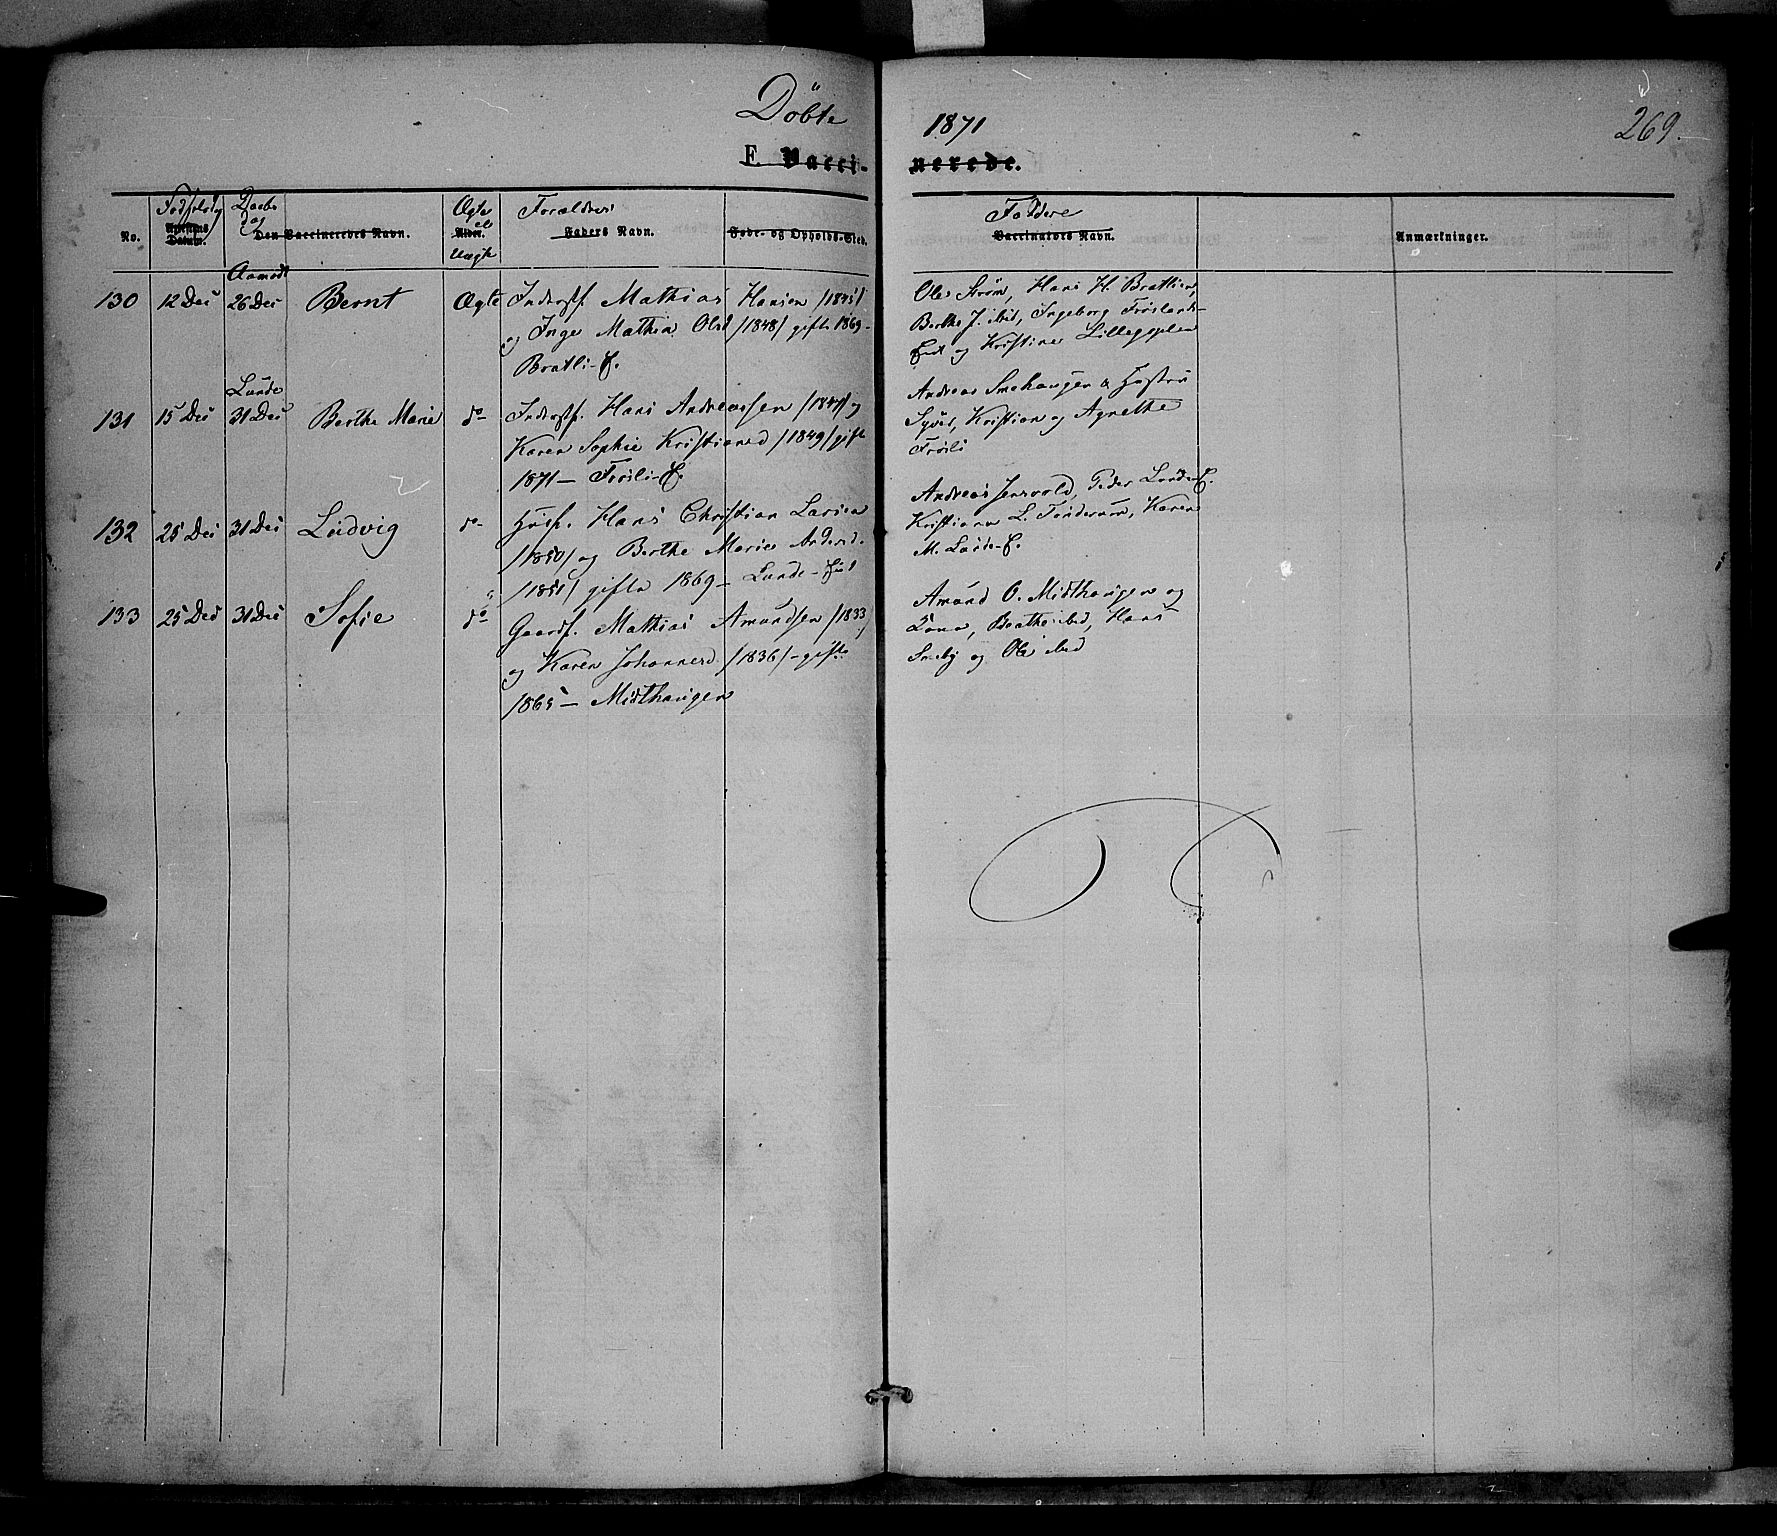 Döbte 1871 269.
E. Vacci-nerede.
No. Fødselsdag Daabsdag Ægte el Uægte Forældres Faddere
Attestens Datum. Den Vaccineredes Navn. Alder. Faders Navn. Føde- og Opholds-Sted. Vaccinators Navn. Anmærkninger.
Aamodt
130 12 Dec 26 Dec Bernt Ægte Inderstf. Mathias Hansen /1845/
og Inge Mathia Olsd /1848/ gifte 1869 -
Bratli-E.
Ole Strøm, Hans H. Bratlien,
Berthe J. ibid, Ingeborg Frøslands-
Eid og Kristine
Lunde
131 15 Dec 31 Dec Berthe Marie do Inderstf. Hans Andreassen /1847/ og
Karen Sophie Kristiansd /1849/ gifte
1871 – Frøsli-E.
Andreas Smehaugen & Hustru
Syver, Kristian og Agnethe
Frøsli
132 25 Dec 31 Dec Ludvig do Husf. Hans Christian Larsen
/1850/ og Berthe Marie Andersd.
/1851/ gifte 1869 – Lunde-Eid
Andreas Jensvold, Peder Lunde-E.
Kristiane L. Karen
M. Lunde-E.
133 25 Dec 31 Dec Sofie do Gaardf. Mathias Amundsen /1833/
og Karen Johannesd /1836/ – gifte
1865 – Midthaugen
Amund O. Midthaugen og
Kone, Beathe ibid, Hans
Smeby og Ole ibid